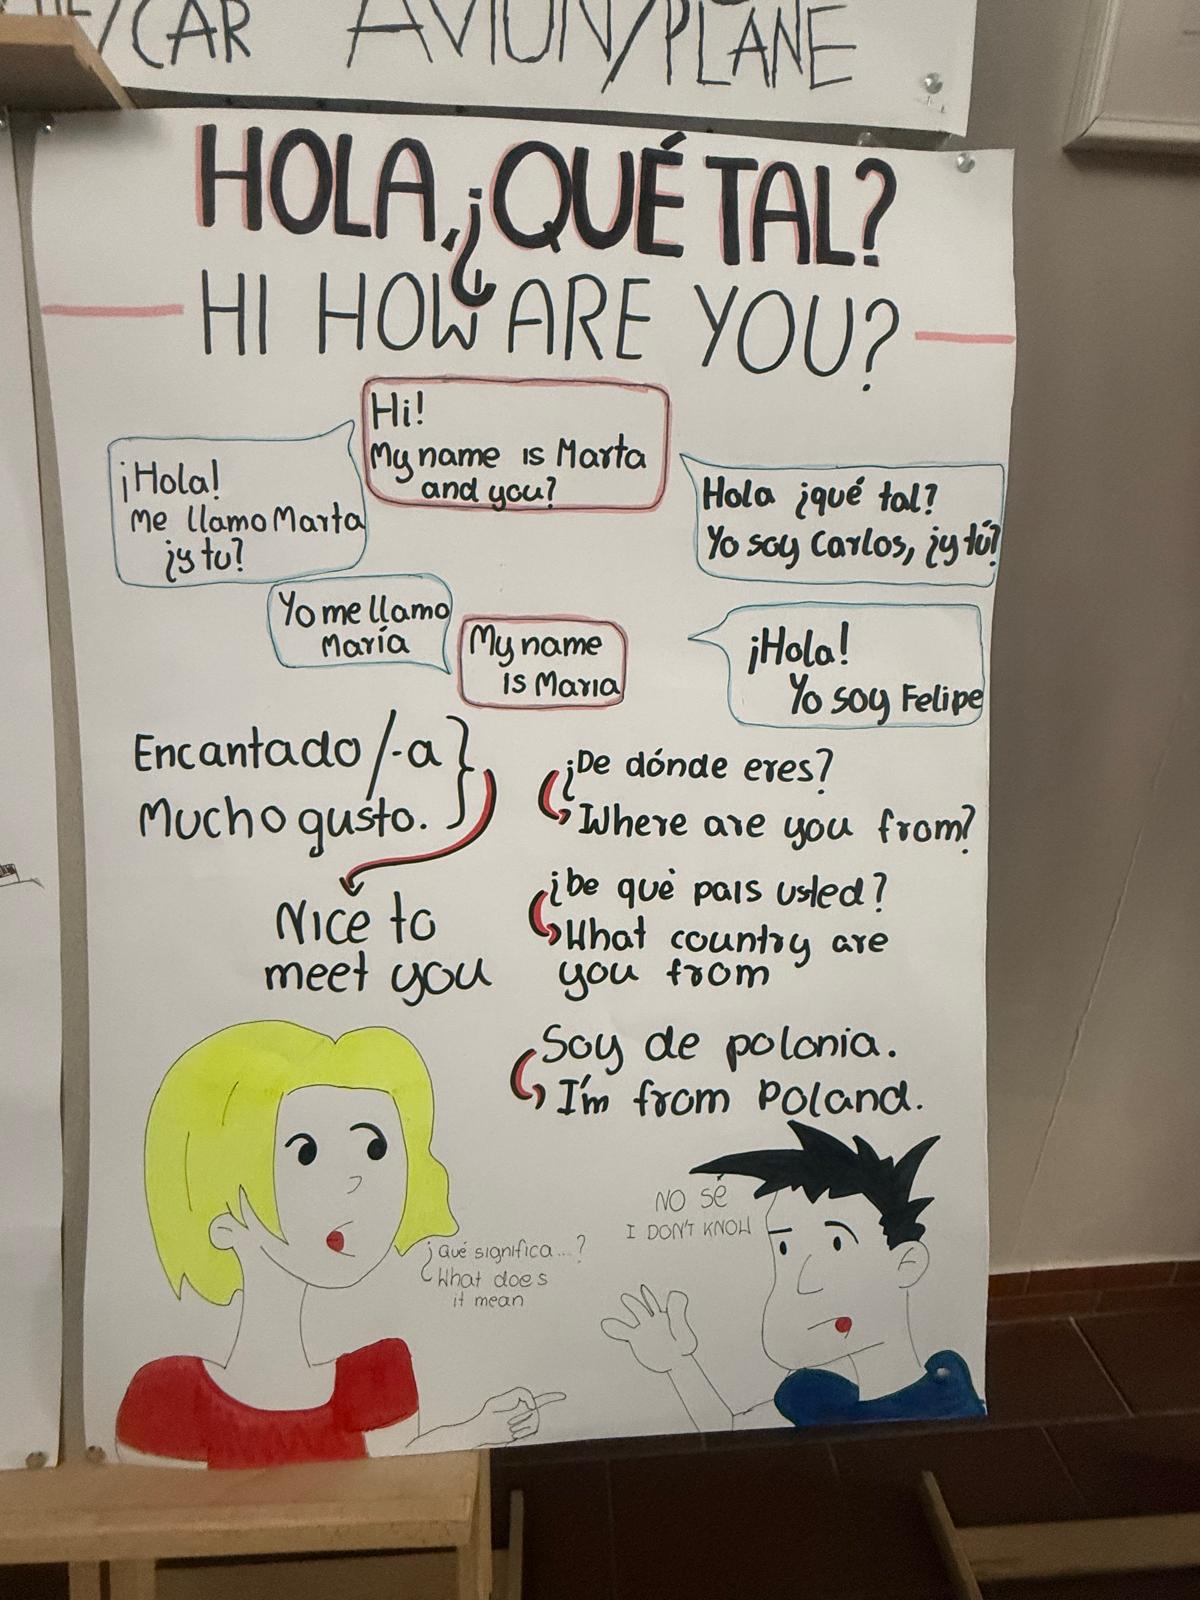 /CAR AVION/PLANE
HOLA, ¿QUÉ TAL?
HI HOW ARE YOU?
Hi!
My name is Marta
and you?
¡Hola!
Me llamo Marta
¿y tu?
Hola ¿qué tal?
Yo soy Carlos, ¿y tú?
Yo me llamo
María
My name
is Maria
¡Hola!
Yo soy Felipe
Encantado/-a
Mucho gusto.
Nice to
meet you
¿De dónde eres?
Where are you from?
¿De qué pais usted?
What country are
you from
Soy de polonia.
I'm from Poland.
NO SÉ
I DON'T KNOW
¿Qué significa...?
What does
it mean